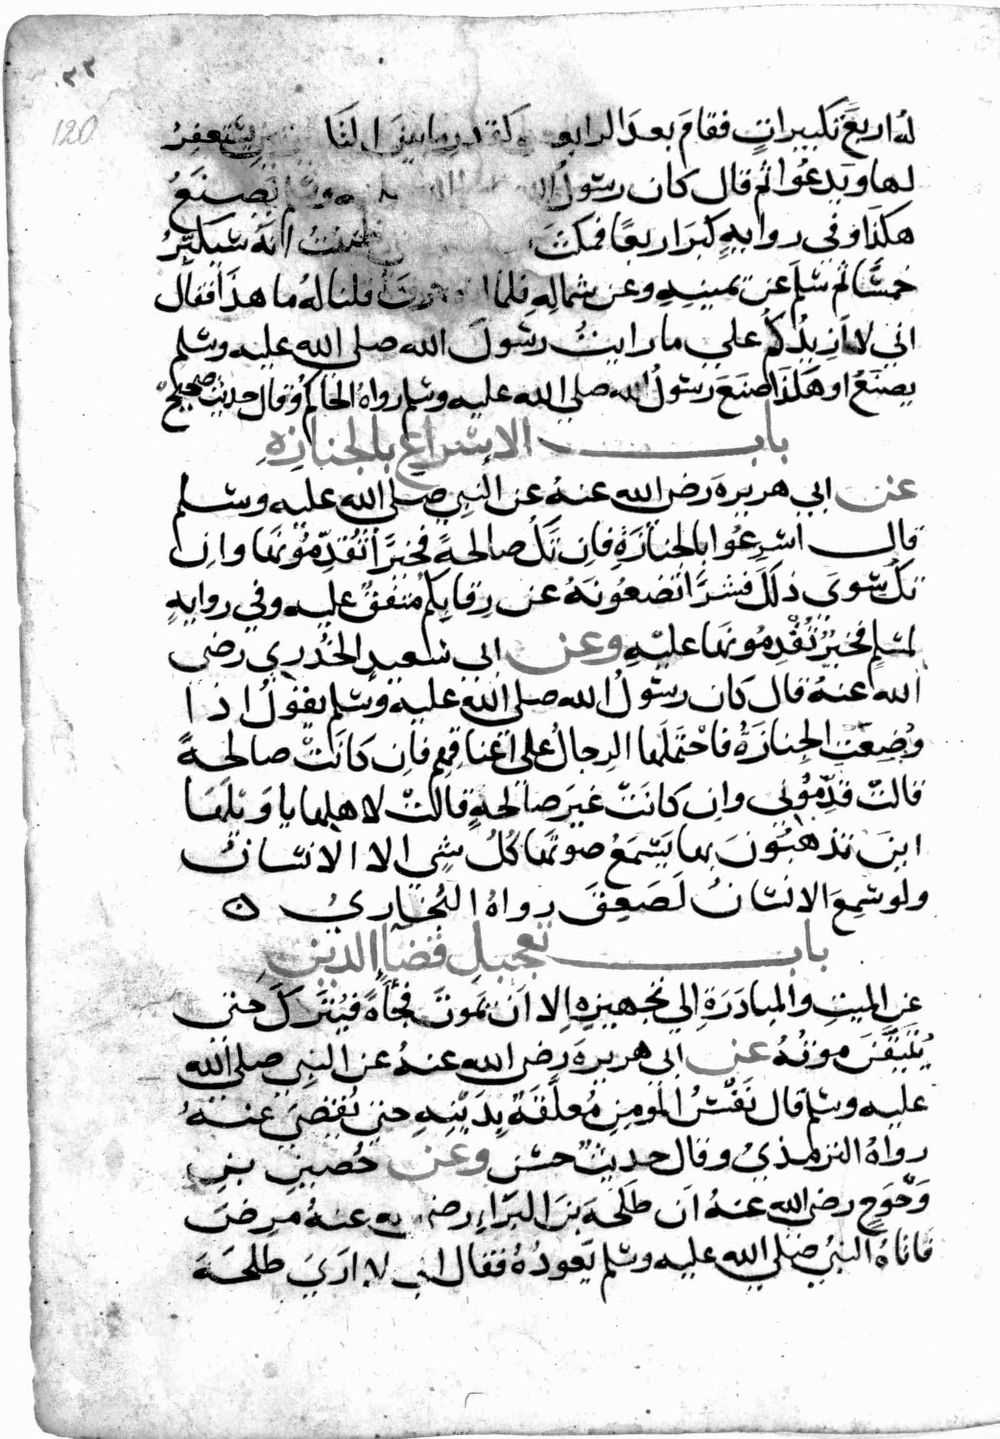 ٢٢
120
له اربعَ تكبيراتٍ فقامَ بعدَ الرابعة كقدر ما بين التا يستغفرُ
لها ويدعُوا ثم قال كان رسُولُ الله يصنَعُ
هكذا وفي روايةٍ كبرَ اربعًا فمكثَ ظننتُ انهُ سَيكبّرُ
خمسًا ثم سَلم عن يمينهِ وعن شمالهِ فلما قلنا لهُ ما هذا فقال
اني لا ازيدُكم علي ما رايتُ رسُولَ الله صلى الله عليه وسَلم
يصنَعُ او هكذا صَنعَ رسُولُ الله صلى الله عليه وسَلم رواهُ الحاكمُ وقال حديث صحيح
باب الاسراع بالجنازة
عن ابي هريرة رضي الله عنهُ عن النبي صلى الله عليه وسَلم
قال اسْرِعُوا بالجنازةِ فان تكُ صالحةً فخيرًا تُقدّمُونها وان
تكُ سوى ذلك فشرًّا تضعُونهُ عن رقابكم متفقٌ عليه وفي روايةٍ
لمسلم فخيرٌ تُقدّمُونها عليْهِ وعن ابي سَعيدٍ الخُدري رضي
الله عنهُ قال كان رسُولُ الله صلى الله عليه وسَلم يقولُ اذا
وُضِعَتِ الجنازَةُ فاحْتملَها الرجالُ على اعْناقهم فان كانَتْ صالحةً
قالتْ قدّمُوني وان كانَتْ غيرَ صالحةٍ قالتْ لاهلها يا وَيلها
اينَ تذهبُونَ بها يَسْمعُ صوتَها كُلُ شي الا الانسانُ
ولو سَمِعَ الانسانُ لَصَعِقَ رواهُ البُخاري ۞
باب تعجيل قضآ الدين
عن الميت والمبادَرَةِ إلى تجهيزه الا ان يموتَ فجْأةً فيُتركَ حتى
يُتيقّنَ موتُهُ عن ابي هريرة رضي الله عنهُ عن النبي صلى الله
عليه وسَلم قال نَفْسُ المومن مُعلّقةٌ بِدَيْنِهِ حتى يُقضَى عنهُ
رواهُ الترمذيُ وقال حديثٌ حسَن وعن حُصينِ بنِ
وَحْوَحٍ رضي الله عنهُ ان طَلحةَ بنَ البرَاءِ رضي الله عنهُ مرِضَ
فاتاهُ النبيُ صلى الله عليه وسَلم يَعودُهُ فقال اني لا ارَى طلحَةَ